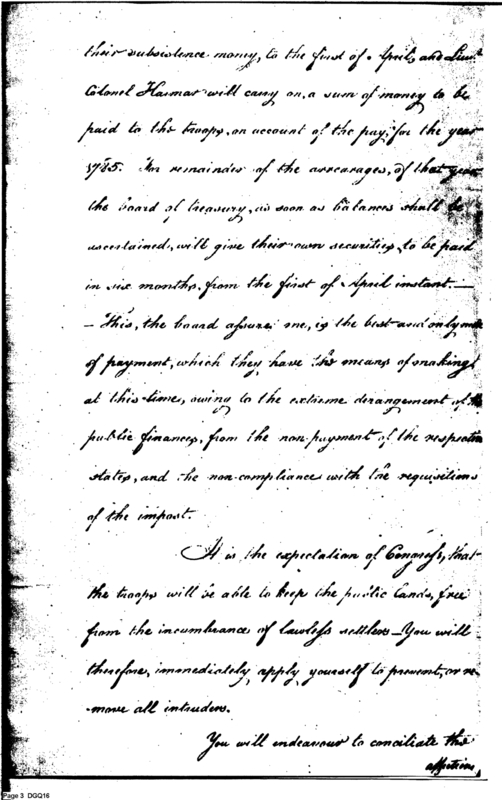 their subsistence money, to the first of April, and Lieut.
Colonel Harmar will carry on, a sum of money to be
paid to the troops, on account of the pay, for the year
1785. For remainder of the arrearages, of that year
the board of treasury, as soon as balances shall be
ascertained, will give their own securities, to be paid
in six months, from the first of April instant.—
— This, the board assures me, is the best and only
of payment, which they have the means of making
at this time, owing to the extreme derangement of the
public finances, from the non payment of the respective
states, and the non-compliance with the requisitions
of the impost.
It is the expectation of Congress, that
the troops will be able to keep the public lands, free
from the incumbrance of lawless settlers — You will
therefore, immediately, apply yourself to prevent, or re-
move all intruders.
You will endeavour to conciliate the
affections,
Page 3 DGQ16